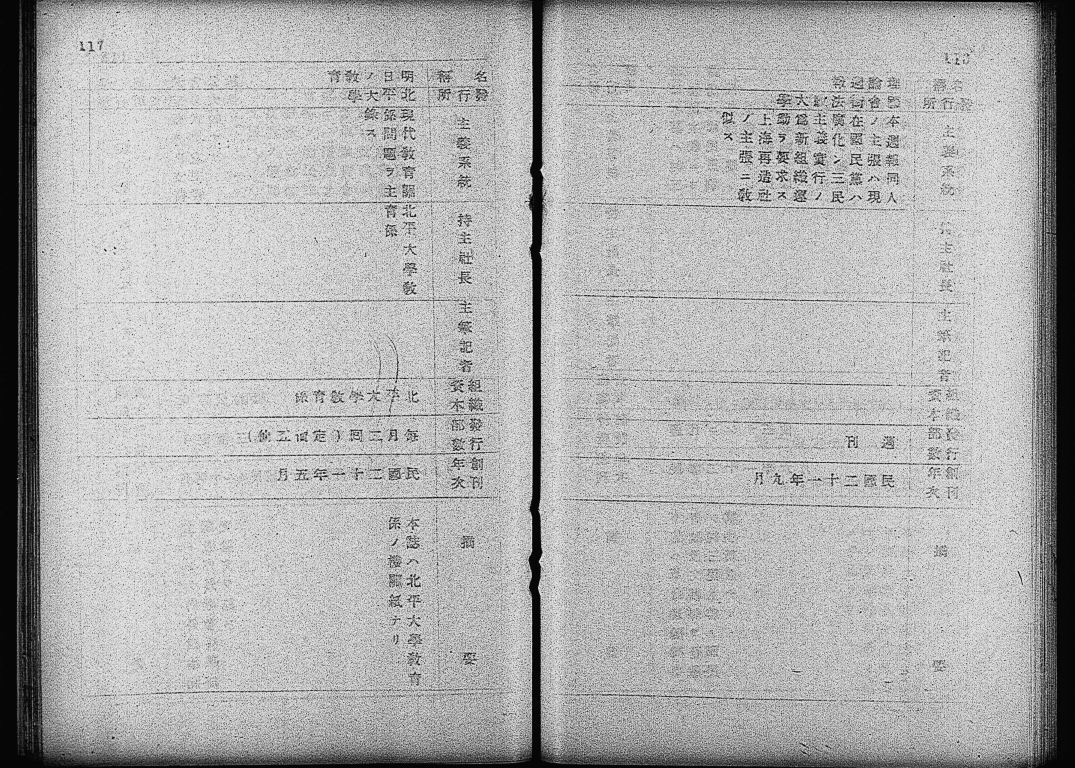 名稱
發行所
主義系統
持主社長
主筆記者
組織
資本
發行
部數
創刊
年次
摘要
本週報同人
ノ主張ハ現
在國民黨ハ
腐化シ三民
主義實行ノ
爲新組織運
動ヲ要求ス
上海再造社
ノ主張ニ
似ス
週刊
民國二十一年九月
117
名稱
發行所
主義系統
持主社長
主筆記者
組織
資本
發行
部數
創刊
年次
摘要
明日ノ教育
北平大學
現代教育關
係問題ヲ主
録ス
北平大學教
育係
北平大學教育係
毎月二回(定價五仙)
民國二十一年五月
本誌ハ北平大學教育
係ノ機關紙ナリ